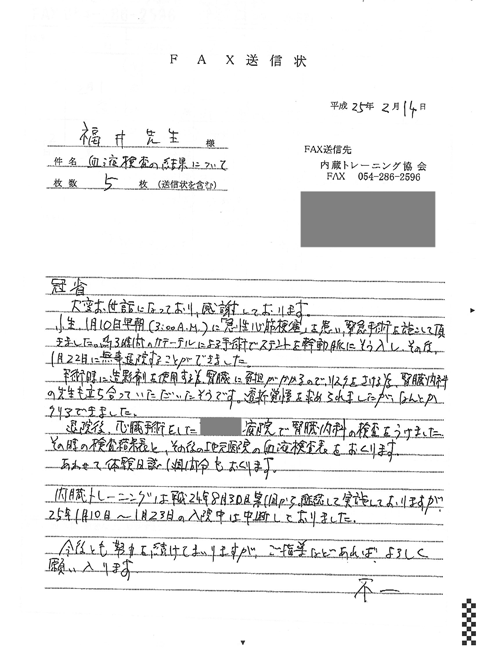 FAX送信状
平成25年2月14日
福井先生 様
件名 血液検査の結果について
枚数 5 枚(送信状を含む)
FAX送信先
内蔵トレーニング協会
FAX 054-286-2596
冠省
大変お世話になっており、感謝しております。
小生、1月10日早朝(3:00A.M.)に「急性心筋梗塞」を患い、緊急手術を施して頂
きました。約3時間のカテーテルによる手術でステントを冠動脈にそう入し、その後、
1月22日に無事退院することができました。
手術時に造影剤を使用する為、腎臓に負担がかかるので、リスクを避ける為、腎臓内科
の先生も立ち合っていただいたそうです。透析覚悟を求められましたがなんとか
クリアできました。
退院後、心臓手術をした 病院で腎臓内科の検査をうけました
その時の検査結果と、その後の地元医院の血液検査表をおくります。
あわせて体験日誌 もおくります。
内臓トレーニングは平成24年8月30日 から継続して実施しておりますが
25年1月10日~1月23日の入院中は中断しておりました。
今後とも努力を続けてまいりますが、ご指導などあれば、よろしく
願い入ります
不一